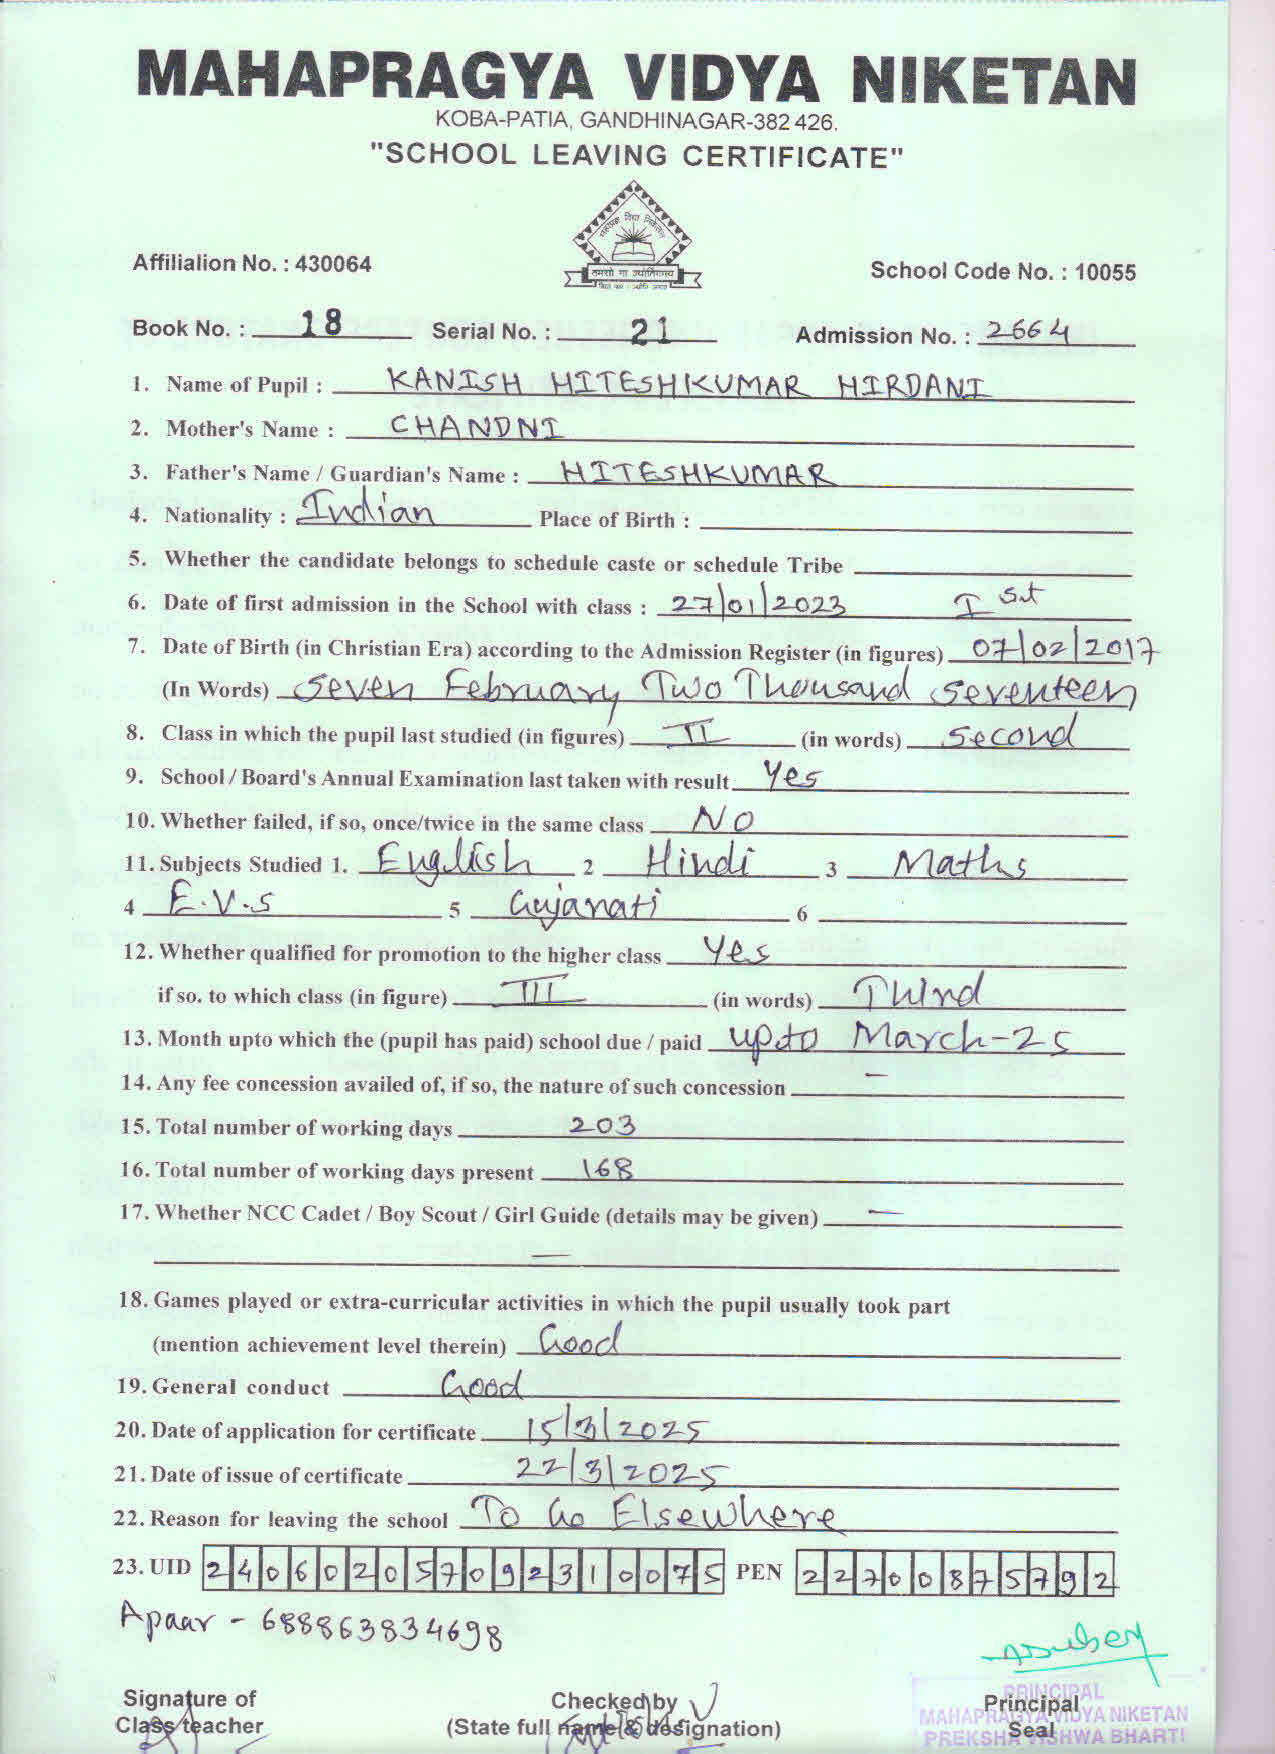 MAHAPRAGYA VIDYA NIKETAN
KOBA-PATIA, GANDHINAGAR-382 426.
"SCHOOL LEAVING CERTIFICATE"
महाप्रज्ञ विद्या निकेतन
तमसो मा ज्योतिर्गमय
Affilialion No. : 430064
School Code No. : 10055
Book No. : 18 Serial No. : 21 Admission No. : 2664
1. Name of Pupil : KANISH HITESHKUMAR HIRDANI
2. Mother's Name : CHANDNI
3. Father's Name / Guardian's Name : HITESHKUMAR
4. Nationality : Indian Place of Birth :
5. Whether the candidate belongs to schedule caste or schedule Tribe
6. Date of first admission in the School with class : 27/01/2023 I st
7. Date of Birth (in Christian Era) according to the Admission Register (in figures) 07/02/2017
(In Words) Seven February Two Thousand Seventeen
8. Class in which the pupil last studied (in figures) II (in words) Second
9. School / Board's Annual Examination last taken with result Yes
10. Whether failed, if so, once/twice in the same class NO
11. Subjects Studied 1. English 2 Hindi 3 Maths
4 E.V.S 5 Gujarati 6
12. Whether qualified for promotion to the higher class Yes
if so. to which class (in figure) III (in words) Third
13. Month upto which the (pupil has paid) school due / paid upto March-25
14. Any fee concession availed of, if so, the nature of such concession —
15. Total number of working days 203
16. Total number of working days present 168
17. Whether NCC Cadet / Boy Scout / Girl Guide (details may be given) —
—
18. Games played or extra-curricular activities in which the pupil usually took part
(mention achievement level therein) Good
19. General conduct Good
20. Date of application for certificate 15/3/2025
21. Date of issue of certificate 22/3/2025
22. Reason for leaving the school To Go Elsewhere
23. UID 240602057092310075 PEN 22700875792
Apaar - 688863834698
Signature of
Class teacher
Checked by
(State full name & designation)
Principal
Seal
PRINCIPAL
MAHAPRAGYA VIDYA NIKETAN
PREKSHA VISHWA BHARTI